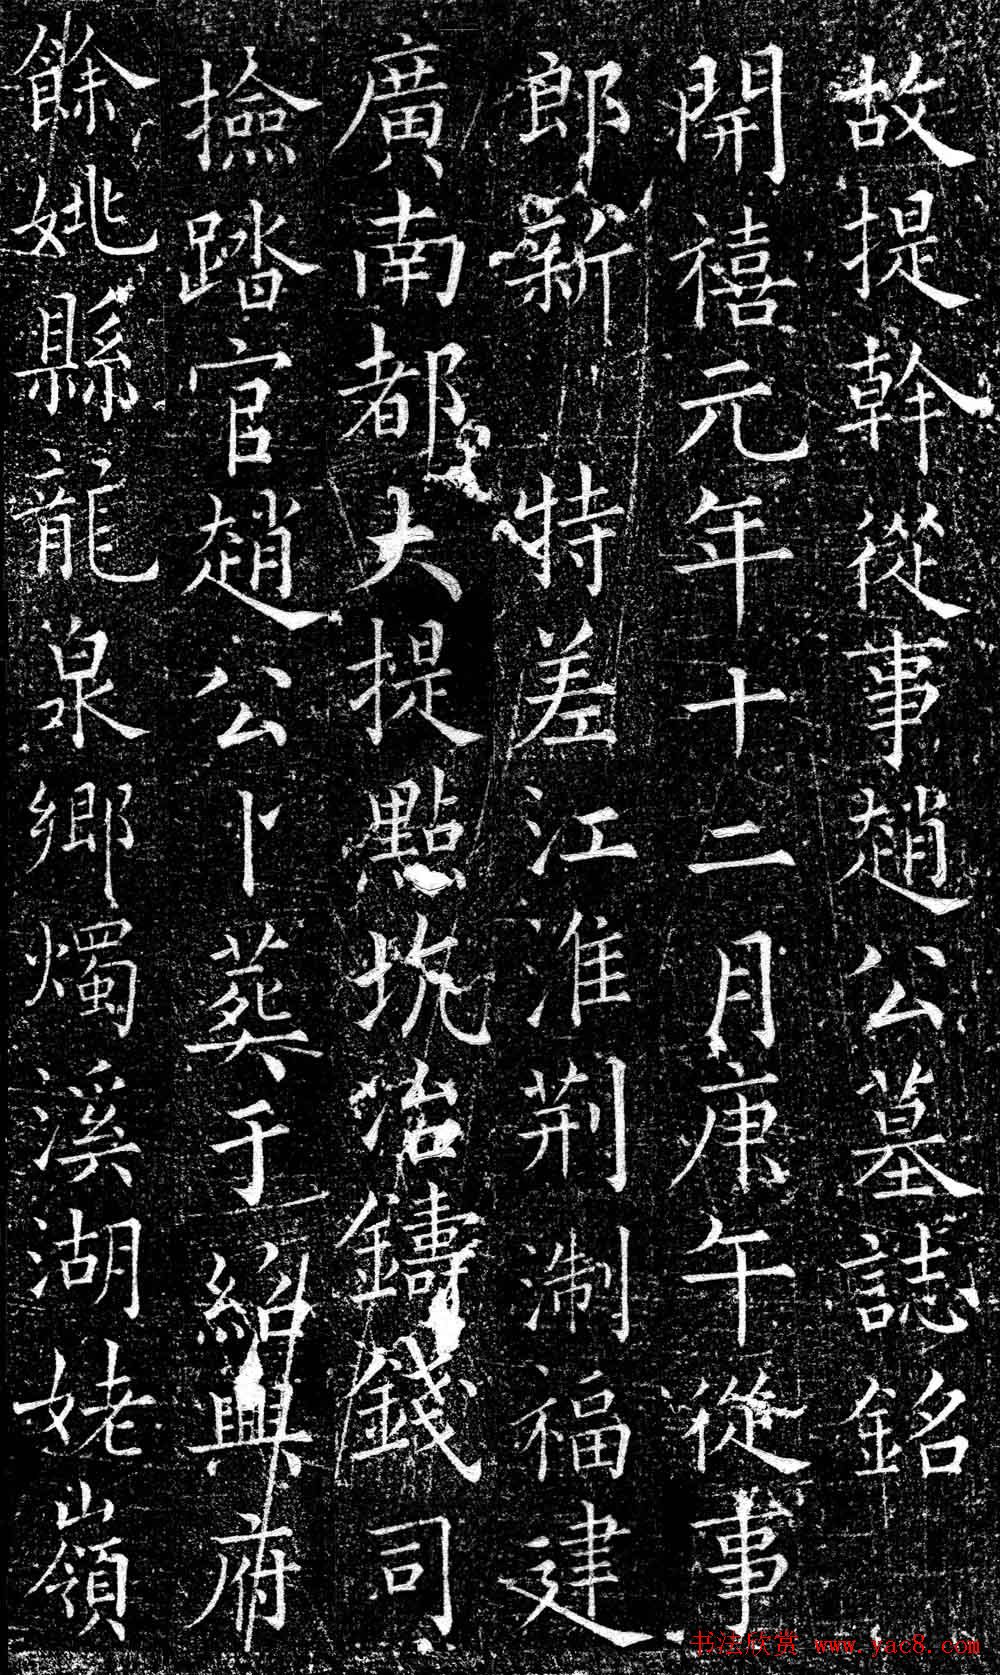 故提幹從事趙公墓誌銘
開禧元年十二月庚午從事
郎新　特差江淮荆淛福建
廣南都大提點坑冶鑄錢司
撿踏官趙公卜葬于　紹興府
餘姚縣龍泉鄉燭溪湖姥嶺
书法欣赏 www.yac8.com